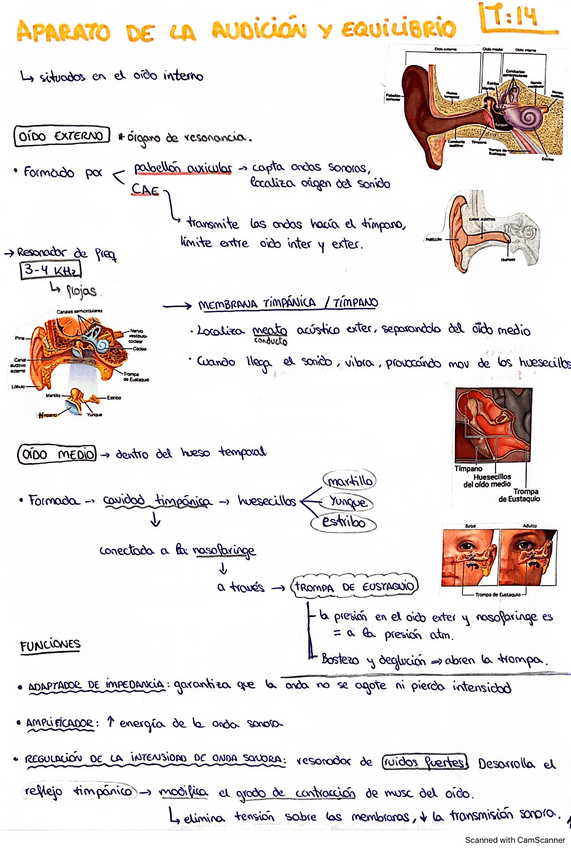 APARATO DE LA AUDICIÓN Y EQUILIBRIO
T:14
↳ situados en el oído interno
Oído externo Oído medio Oído interno
OÍDO EXTERNO * órgano de resonancia.
• Formado por < pabellón auricular → capta ondas sonoras,
localiza origen del sonido
CAE
transmite las ondas hacía el tímpano,
límite entre oido inter y exter.
→ Resonador de freq
3-4 KHz
↳ flojas.
→ MEMBRANA TIMPÁNICA / TÍMPANO
• Localiza meato acústico exter, separandolo del oído medio
conducto
• Cuando llega el sonido, vibra, provocando mov de los huesecillos
Canales semicirculares
Nervio
vestíbulo-
coclear
Cóclea
Pina
Canal
auditivo
externo
Lóbulo
Trompa
de Eustaquio
Martillo
Estribo
Tímpano
Yunque
OÍDO MEDIO → dentro del hueso temporal
• Formada → cavidad timpánica → huesecillos
martillo
Yunque
estribo
Tímpano
Huesecillos
del oído medio
Trompa
de Eustaquio
conectada a la nasofaringe
a través → TROMPA DE EUSTAQUIO
Bebé Adulto
Trompa de Eustaquio
la presión en el oido exter y nasofaringe es
= a la presión atm.
Bostezo y deglución ⇒ abren la trompa.
FUNCIONES
• ADAPTADOR DE IMPEDANCIA: garantiza que la onda no se agote ni pierda intensidad
• AMPLIFICADOR: ↑ energía de la onda sonora
• REGULACIÓN DE LA INTENSIDAD DE ONDA SONORA: resonador de ruidos fuertes. Desarrolla el
reflejo timpánico → modifica el grado de contracción de musc del oído.
↳ elimina tensión sobre las membranas, ↓ la transmisión sonora.
Scanned with CamScanner